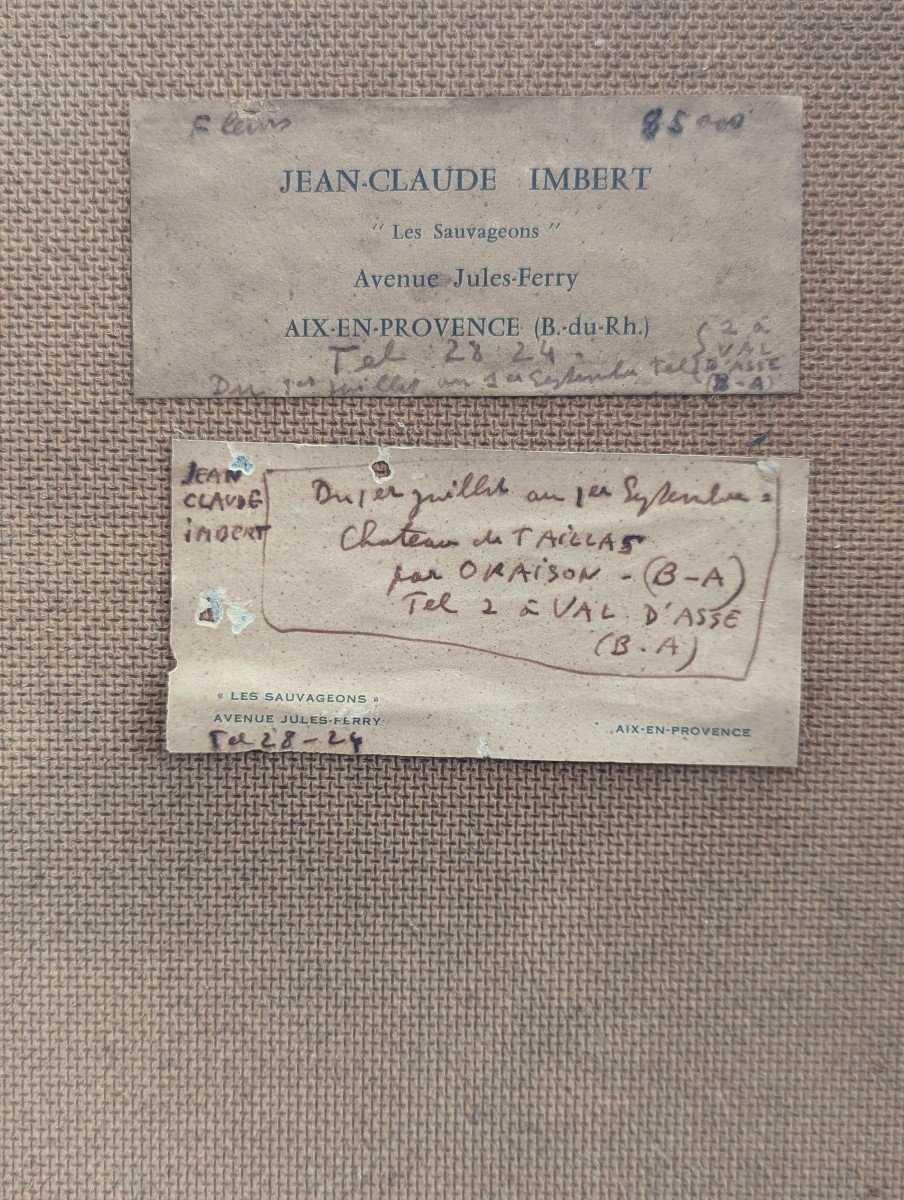 Fleurs 85 000
JEAN-CLAUDE IMBERT
" Les Sauvageons "
Avenue Jules-Ferry
AIX-EN-PROVENCE (B.-du-Rh.)
Tel : 28 24 -
Du 1er juillet au 1er Septembre tel { 2 à
VAL
D'ASSE
(B-A)
JEAN
CLAUDE
IMBERT
Du 1er juillet au 1er Septembre =
Chateau de TAILLAS
par ORAISON - (B-A)
Tel 2 à VAL D'ASSE
(B.A)
« LES SAUVAGEONS »
AVENUE JULES-FERRY
Tel 28-24
AIX-EN-PROVENCE